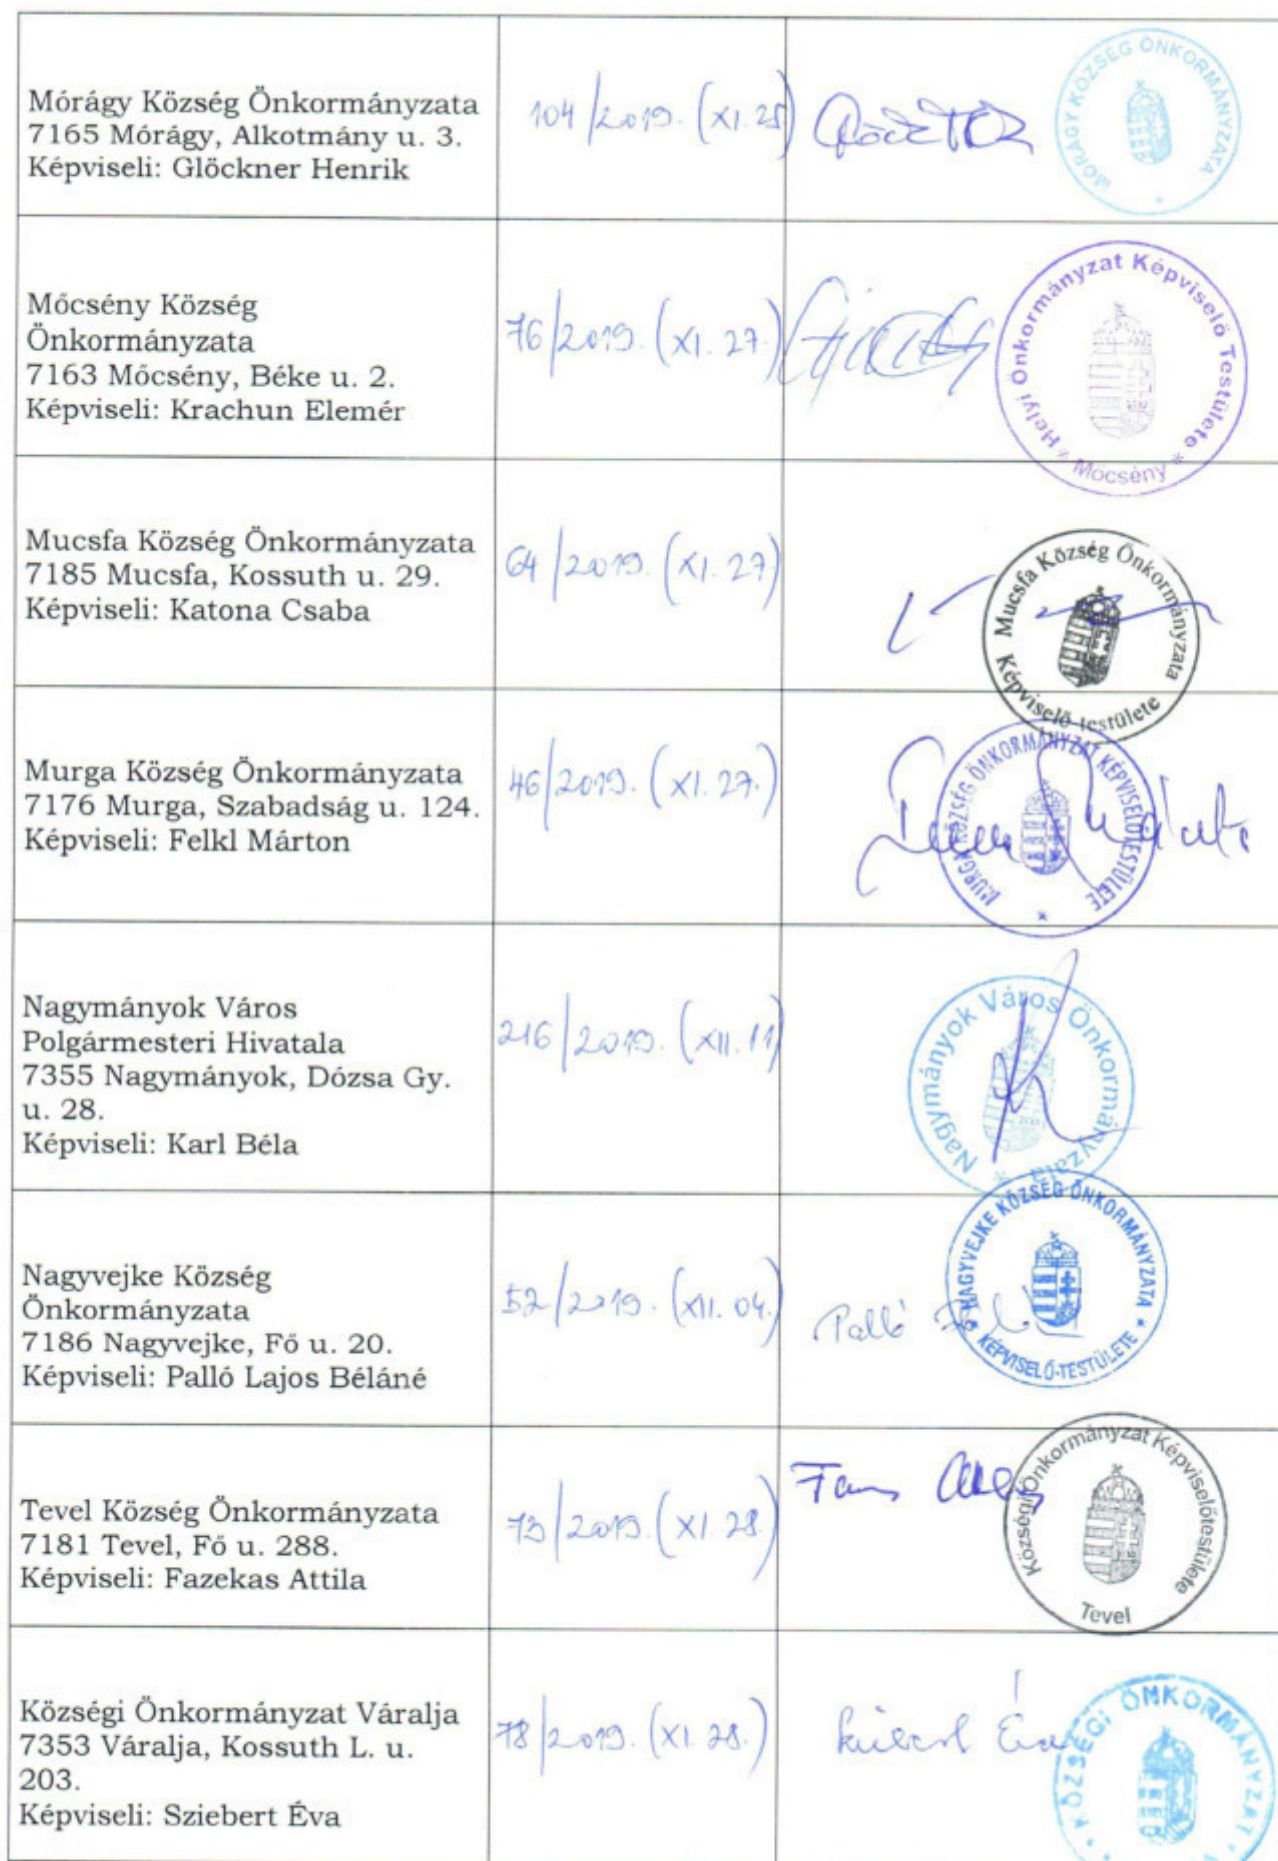 Mórágy Község Önkormányzata
7165 Mórágy, Alkotmány u. 3.
Képviseli: Glöckner Henrik
104/2019. (XI. 25)
MÓRÁGY KÖZSÉG ÖNKORMÁNYZATA
Mőcsény Község
Önkormányzata
7163 Mőcsény, Béke u. 2.
Képviseli: Krachun Elemér
76/2019. (XI. 27.)
Helyi Önkormányzat Képviselő Testülete
* Mocsény *
Mucsfa Község Önkormányzata
7185 Mucsfa, Kossuth u. 29.
Képviseli: Katona Csaba
64/2019. (XI. 27)
Mucsfa Község Önkormányzata
Képviselő testülete
Murga Község Önkormányzata
7176 Murga, Szabadság u. 124.
Képviseli: Felkl Márton
46/2019. (XI. 27.)
MURGA KÖZSÉG ÖNKORMÁNYZAT KÉPVISELŐTESTÜLETE
*
Nagymányok Város
Polgármesteri Hivatala
7355 Nagymányok, Dózsa Gy.
u. 28.
Képviseli: Karl Béla
216/2019. (XII. 11)
Nagymányok Város Önkormányzata
*
Nagyvejke Község
Önkormányzata
7186 Nagyvejke, Fő u. 20.
Képviseli: Palló Lajos Béláné
52/2019. (XII. 04.)
Palló
NAGYVEJKE KÖZSÉG ÖNKORMÁNYZATA
* KÉPVISELŐ-TESTÜLETE *
Tevel Község Önkormányzata
7181 Tevel, Fő u. 288.
Képviseli: Fazekas Attila
73/2019. (XI. 28)
Községi Önkormányzat Képviselőtestülete
Tevel
Községi Önkormányzat Váralja
7353 Váralja, Kossuth L. u.
203.
Képviseli: Sziebert Éva
78/2019. (XI. 28.)
Éva
KÖZSÉGI ÖNKORMÁNYZAT